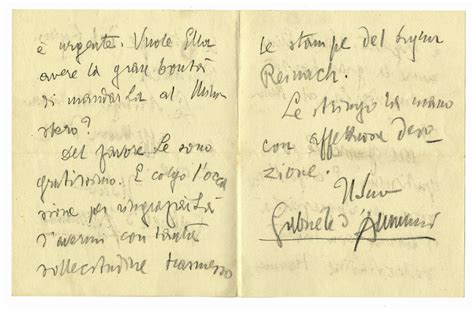 è urgente. Vuole Ella
avere la gran bontà
di mandarla al Mini-
stero?
Del favore Le sono
gratissimo. E colgo l'occa
sione per ringraziarLa
d'avermi con tanta
sollecitudine trasmesso
le stampe del Signor
Reinach.
Le stringo la mano
con affettuosa devo-
zione.
Il Suo
Gabriele d'Annunzio